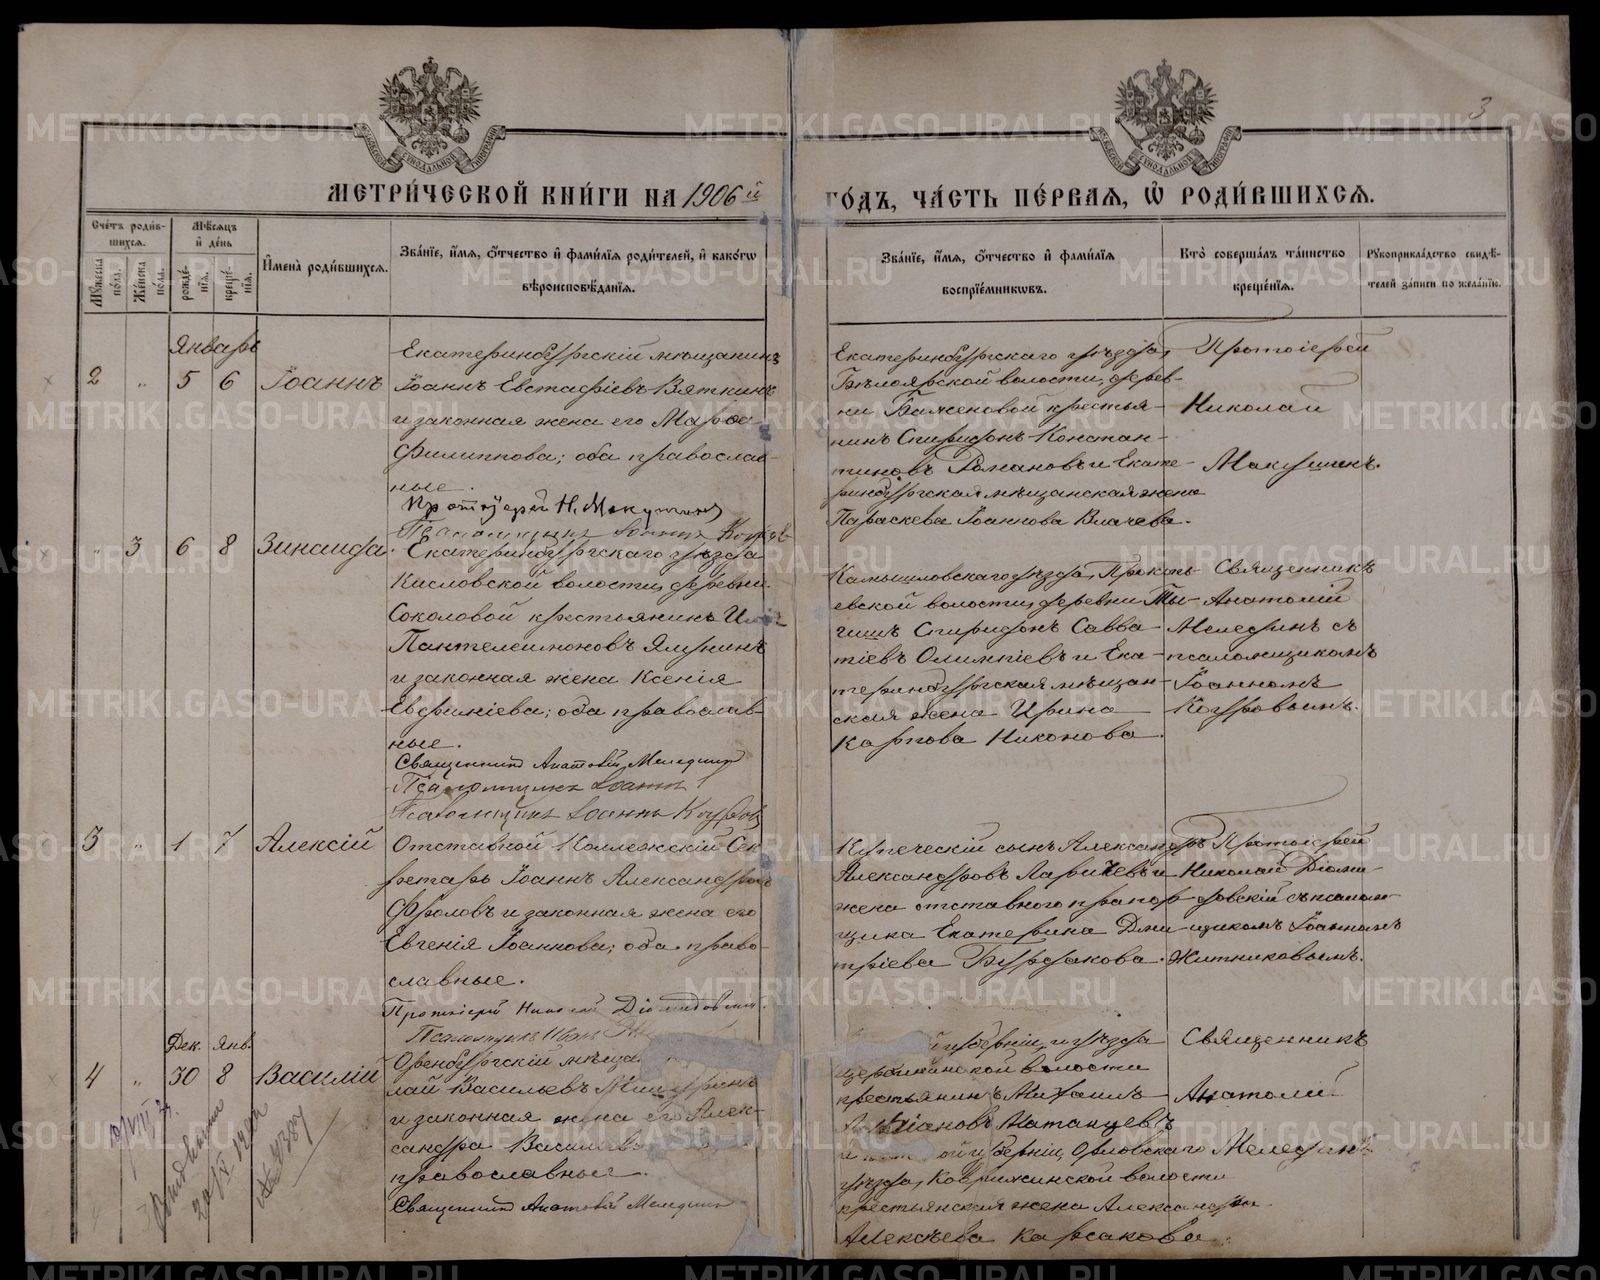 3
МЕТРИ́ЧЕСКОЙ КНИ́ГИ НА 1906й ГО́ДЪ, ЧА́СТЬ ПЕ́РВАЯ, Ѿ РОДИ́ВШИХСЯ.
Сче́тъ роди́в-
шихся.
Му́жеска по́ла.
Же́нска по́ла.
Мѣ́сяцъ и де́нь
рожде́-
нія.
креще́-
нія.
Имена̀ роди́вшихся.
Зва́ніе, и́мя, о́тчество и фами́лія роди́телей, и како́гѡ
вѣроисповѣ́данія.
Зва́ніе, и́мя, о́тчество и фами́лія
воспріе́мниковъ.
Кто̀ соверша́лъ та́инство
креще́нія.
Рукоприкла́дство свидѣ́-
телей за́писи по жела́нію.
Январь
2 " 5 6 Іоаннъ
Екатеринбургскій мѣщанинъ
Іоаннъ Евстафіевъ Вяткинъ
и законная жена его Марѳа
Филиппова; оба православ-
ные.
Протоіерей Н. Макушинъ
Псаломщикъ Іоаннъ
Екатеринбургскаго уѣзда,
Бѣлоярской волости, дерев-
ни Баженовой крестья-
нинъ Спиридонъ Констан-
тиновъ Романовъ и Екате-
ринбургская мѣщанская жена
Параскева Іоаннова
Протоіерей
Николай
Макушинъ.
" 3 6 8 Зинаида.
Екатеринбургскаго уѣзда
Кисловской волости, деревни
Соколовой крестьянинъ
Пантелеимоновъ Ялунинъ
и законная жена Ксенія
Евфиміева; оба православ-
ные.
Священникъ Анатолій Мелединъ
Псаломщикъ Іоаннъ
Псаломщикъ Іоаннъ
Камышловскаго уѣзда,
евской волости, деревни Ты-
гишъ Спиридонъ Савва-
тіевъ Олимпіевъ и Ека-
теринбургская мѣщан-
ская жена Ирина
Карпова Никонова.
Священникъ
Анатолій
Мелединъ съ
псаломщикомъ
Іоанномъ
3 " 1 7 Алексій
Отставной Коллежскій Сек
ретарь Іоаннъ Александровъ
Фроловъ и законная жена его
Евгенія Іоаннова; оба право-
славные.
Протоіерей Николай Діомидовскій.
Псаломщикъ Іоан
Купеческій сынъ Александръ
Александровъ Ларичевъ и
жена отставного прапор-
щика Екатерина Дми-
тріева Бурдакова.
Протоіерей
Николай Діоми-
довскій съ псалом-
щикомъ Іоанномъ
Житниковымъ.
Дек. Янв.
4 " 30 8 Василій
Оренбургскій мѣща
лай Васильевъ
и законная жена его Алек-
сандра
православные.
Священникъ Анатолій Мелединъ
губерніи, и уѣзда
волости
крестьянинъ Михаилъ
губерніи, Орловскаго
уѣзда, волости
крестьянская жена Александра
Алексѣева Карсакова.
Священникъ
Анатолій
Мелединъ
METRIKI.GASO-URAL.RU